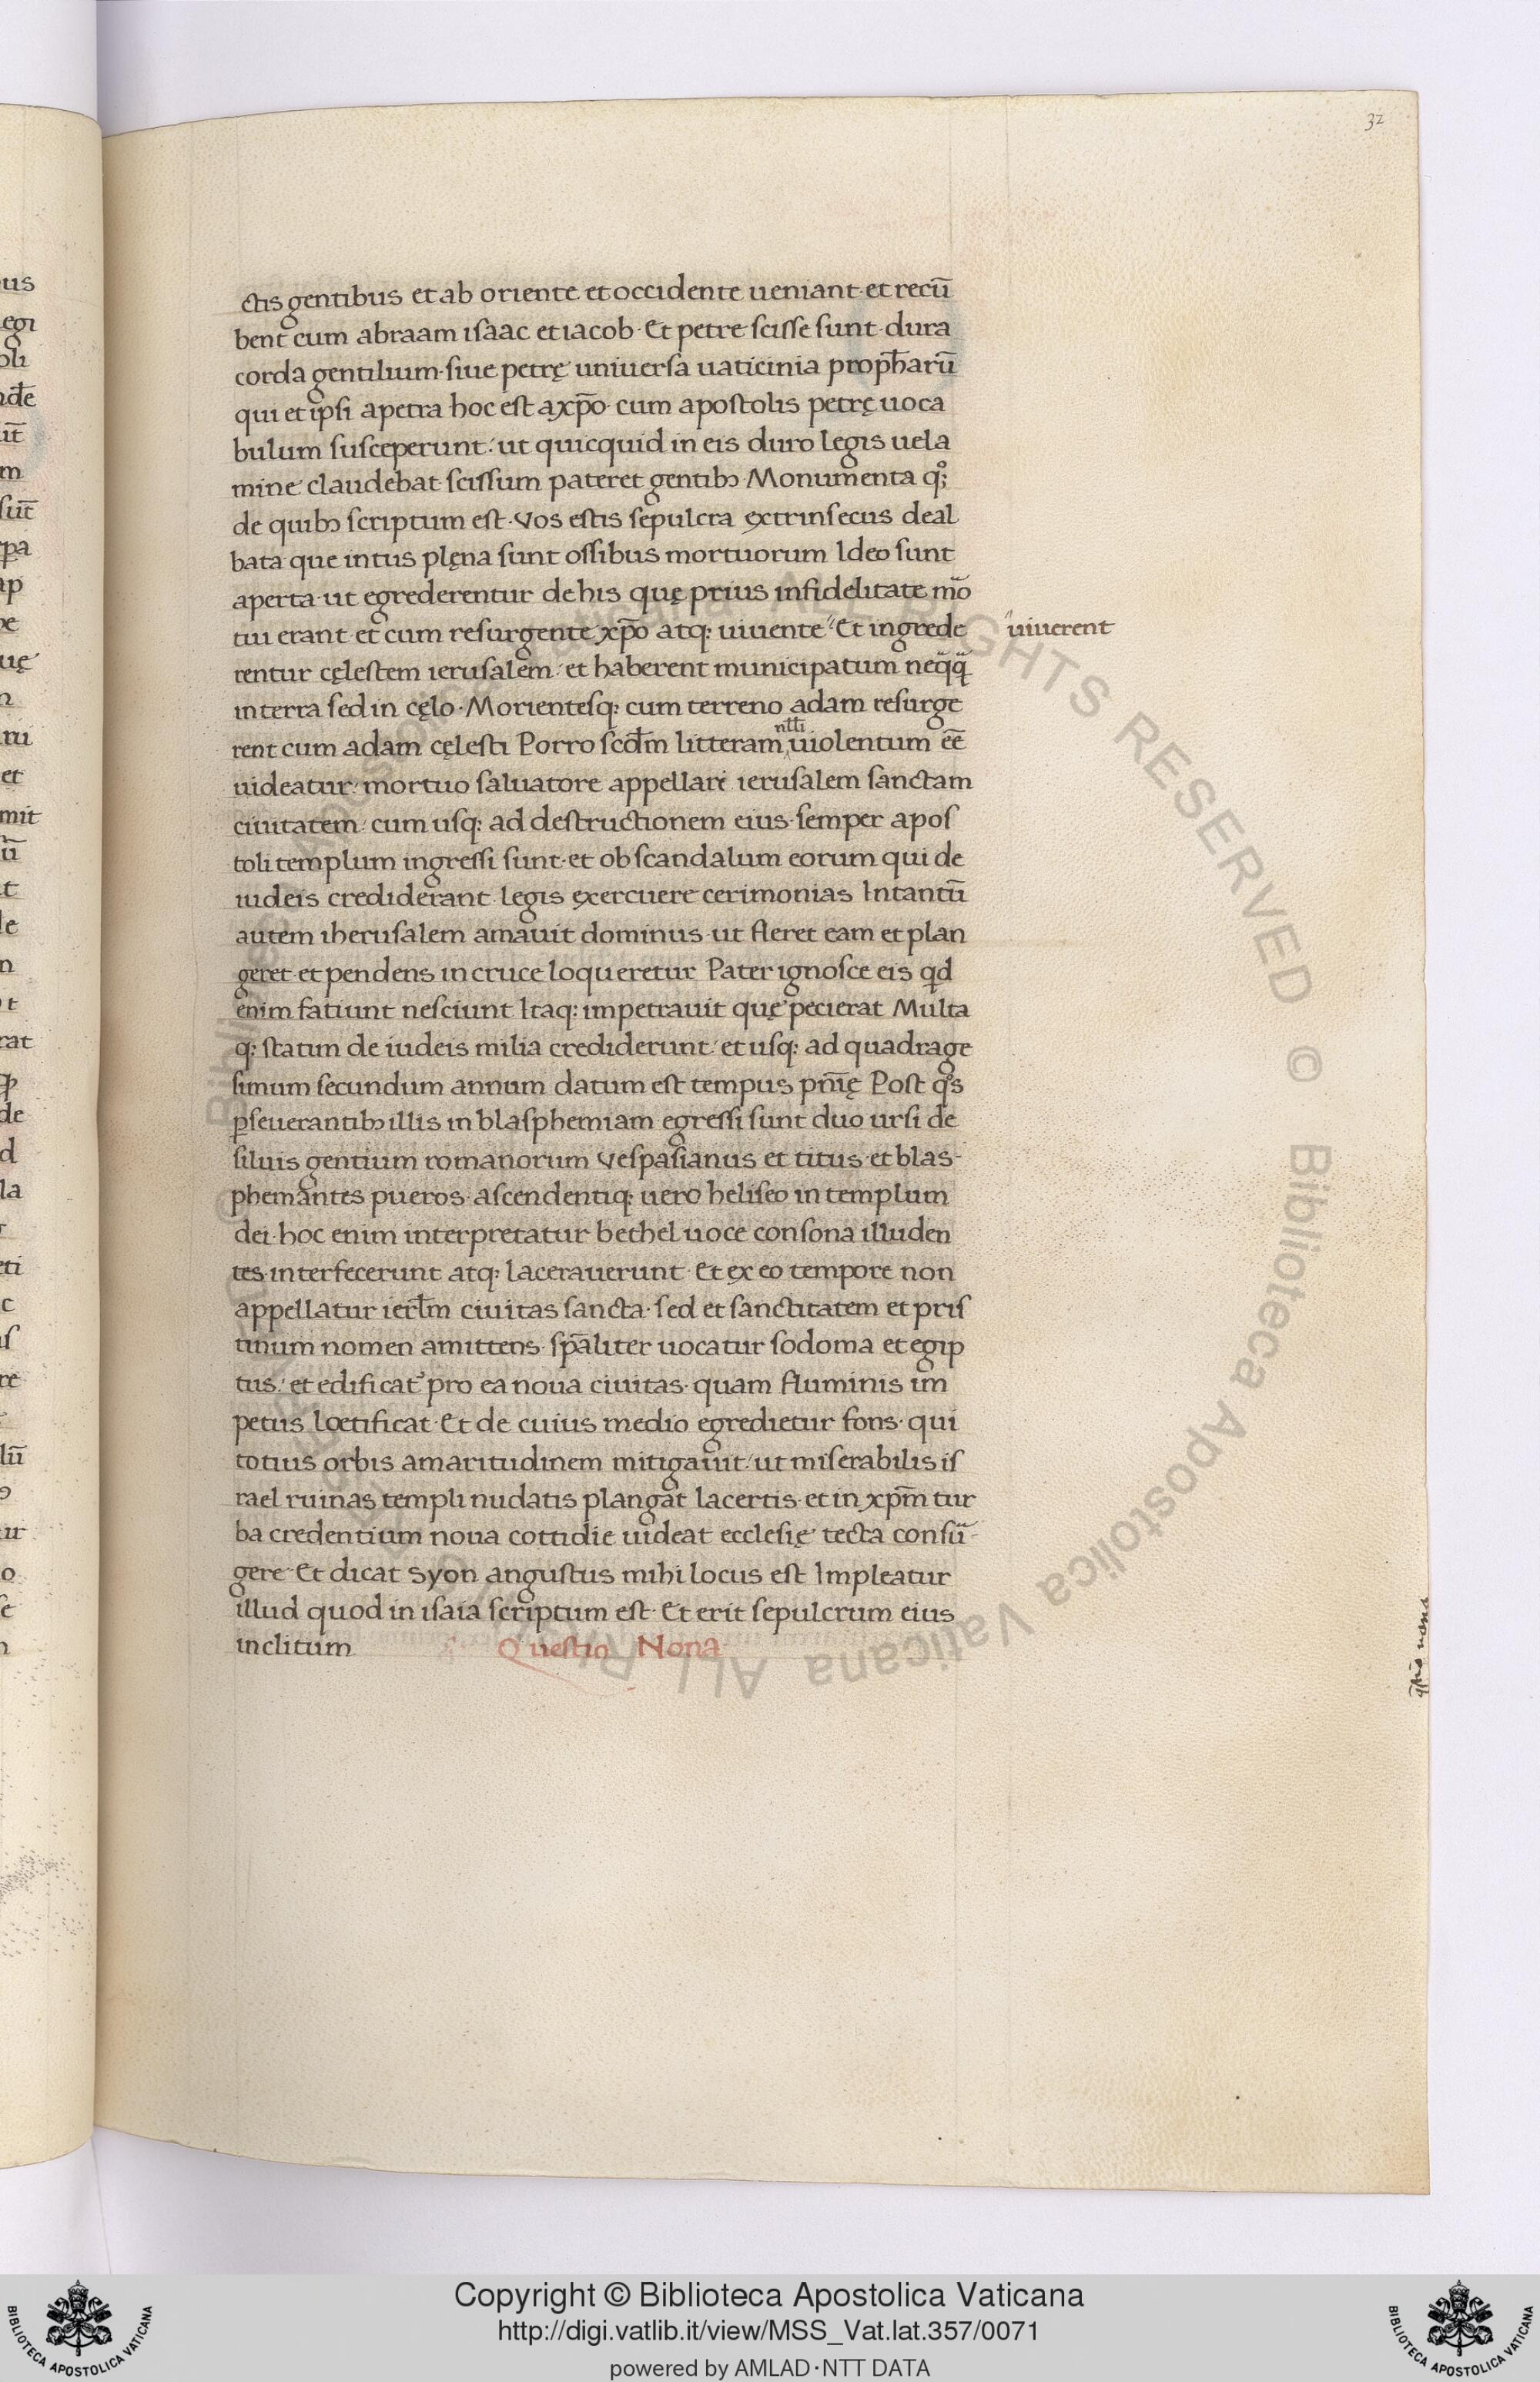 32
ctis gentibus et ab oriente et occidente ueniant·et recū
bent cum abraam isaac et iacob· Et petre scisse sunt·dura
corda gentilium·siue petrę uniuersa uaticinia proph̄arū
qui et ipsi apetra hoc est axp̄o· cum apostolis petrę uoca
bulum susceperunt: ut quicquid in eis duro legis uela
mine claudebat scissum pateret gentibꝫ· Monumenta qͦ;
de quibꝫ scriptum est· Vos estis sepulcra extrinsecus deal
bata que intus plęna sunt ossibus mortuorum Ideo sunt
aperta·ut egrederentur de his quę prius infidelitate moᷓ
tui erant et cum resurgente xp̄o atq: uiuente·" Et ingrede
"uiuerent
rentur cęlestem ierusalem: et haberent municipatum neqᷓqᷓ
in terra sed in cęlo· Morientesq: cum terreno adam resurge
rent cum adam cęlesti Porro scd̄m litteram uiolentum ēē
ntt̄i
uideatur: mortuo saluatore appellari ierusalem sanctam
ciuitatem: cum usq: ad destructionem eius·semper apos
toli templum ingressi sunt·et ob scandalum eorum qui de
iudeis crediderant legis exercuere cerimonias Intantū
autem iherusalem amauit dominus·ut fleret eam et plan
geret·et pendens in cruce loqueretur Pater ignosce eis qd
enim fatiunt nesciunt Itaq: impetrauit quę pecierat Multa
q: statim de iudeis milia crediderunt: et usq: ad quadrage
simum secundum annum datum est tempus pn̄ię Post qͦs
ꝑseuerantibꝫ illis in blasphemiam egressi sunt duo ursi de
siluis gentium romanorum Vespasianus et titus·et blas-
phemantes pueros·ascendentiq: uero heliseo in templum
dei·hoc enim interpretatur bethel uoce consona illuden
tes·interfecerunt atq: lacerauerunt· Et ex eo tempore non
appellatur ierl̄m ciuitas sancta· sed et sanctitatem et pris
tinum nomen amittens· sp̄aliter uocatur sodoma et egip
tus: et edificat᷒ pro ea noua ciuitas· quam fluminis im
petus loetificat· Et de cuius medio egredietur fons· qui
totius orbis amaritudinem mitigauit: ut miserabilis is
rael ruinas templi nudatis plangat lacertis·et in xp̄m tur
ba credentium noua cottidie uideat ecclesię tecta consuᷓ-
gere· Et dicat Syon angustus mihi locus est Impleatur
illud quod in isaia scriptum est· Et erit sepulcrum eius
inclitum Questio Nona
q̄stio nona
Copyright © Biblioteca Apostolica Vaticana
http://digi.vatlib.it/view/MSS_Vat.lat.357/0071
powered by AMLAD·NTT DATA